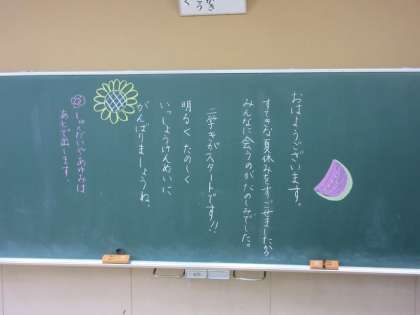 おはようございます。
すてきな夏休みをすごせましたか
みんなに会うのがたのしみでした。
二学きがスタートです!!
明るくたのしく
いっしょうけんめいに
がんばりましょうね。
しゅくだいやあゆみは
あとで出します。